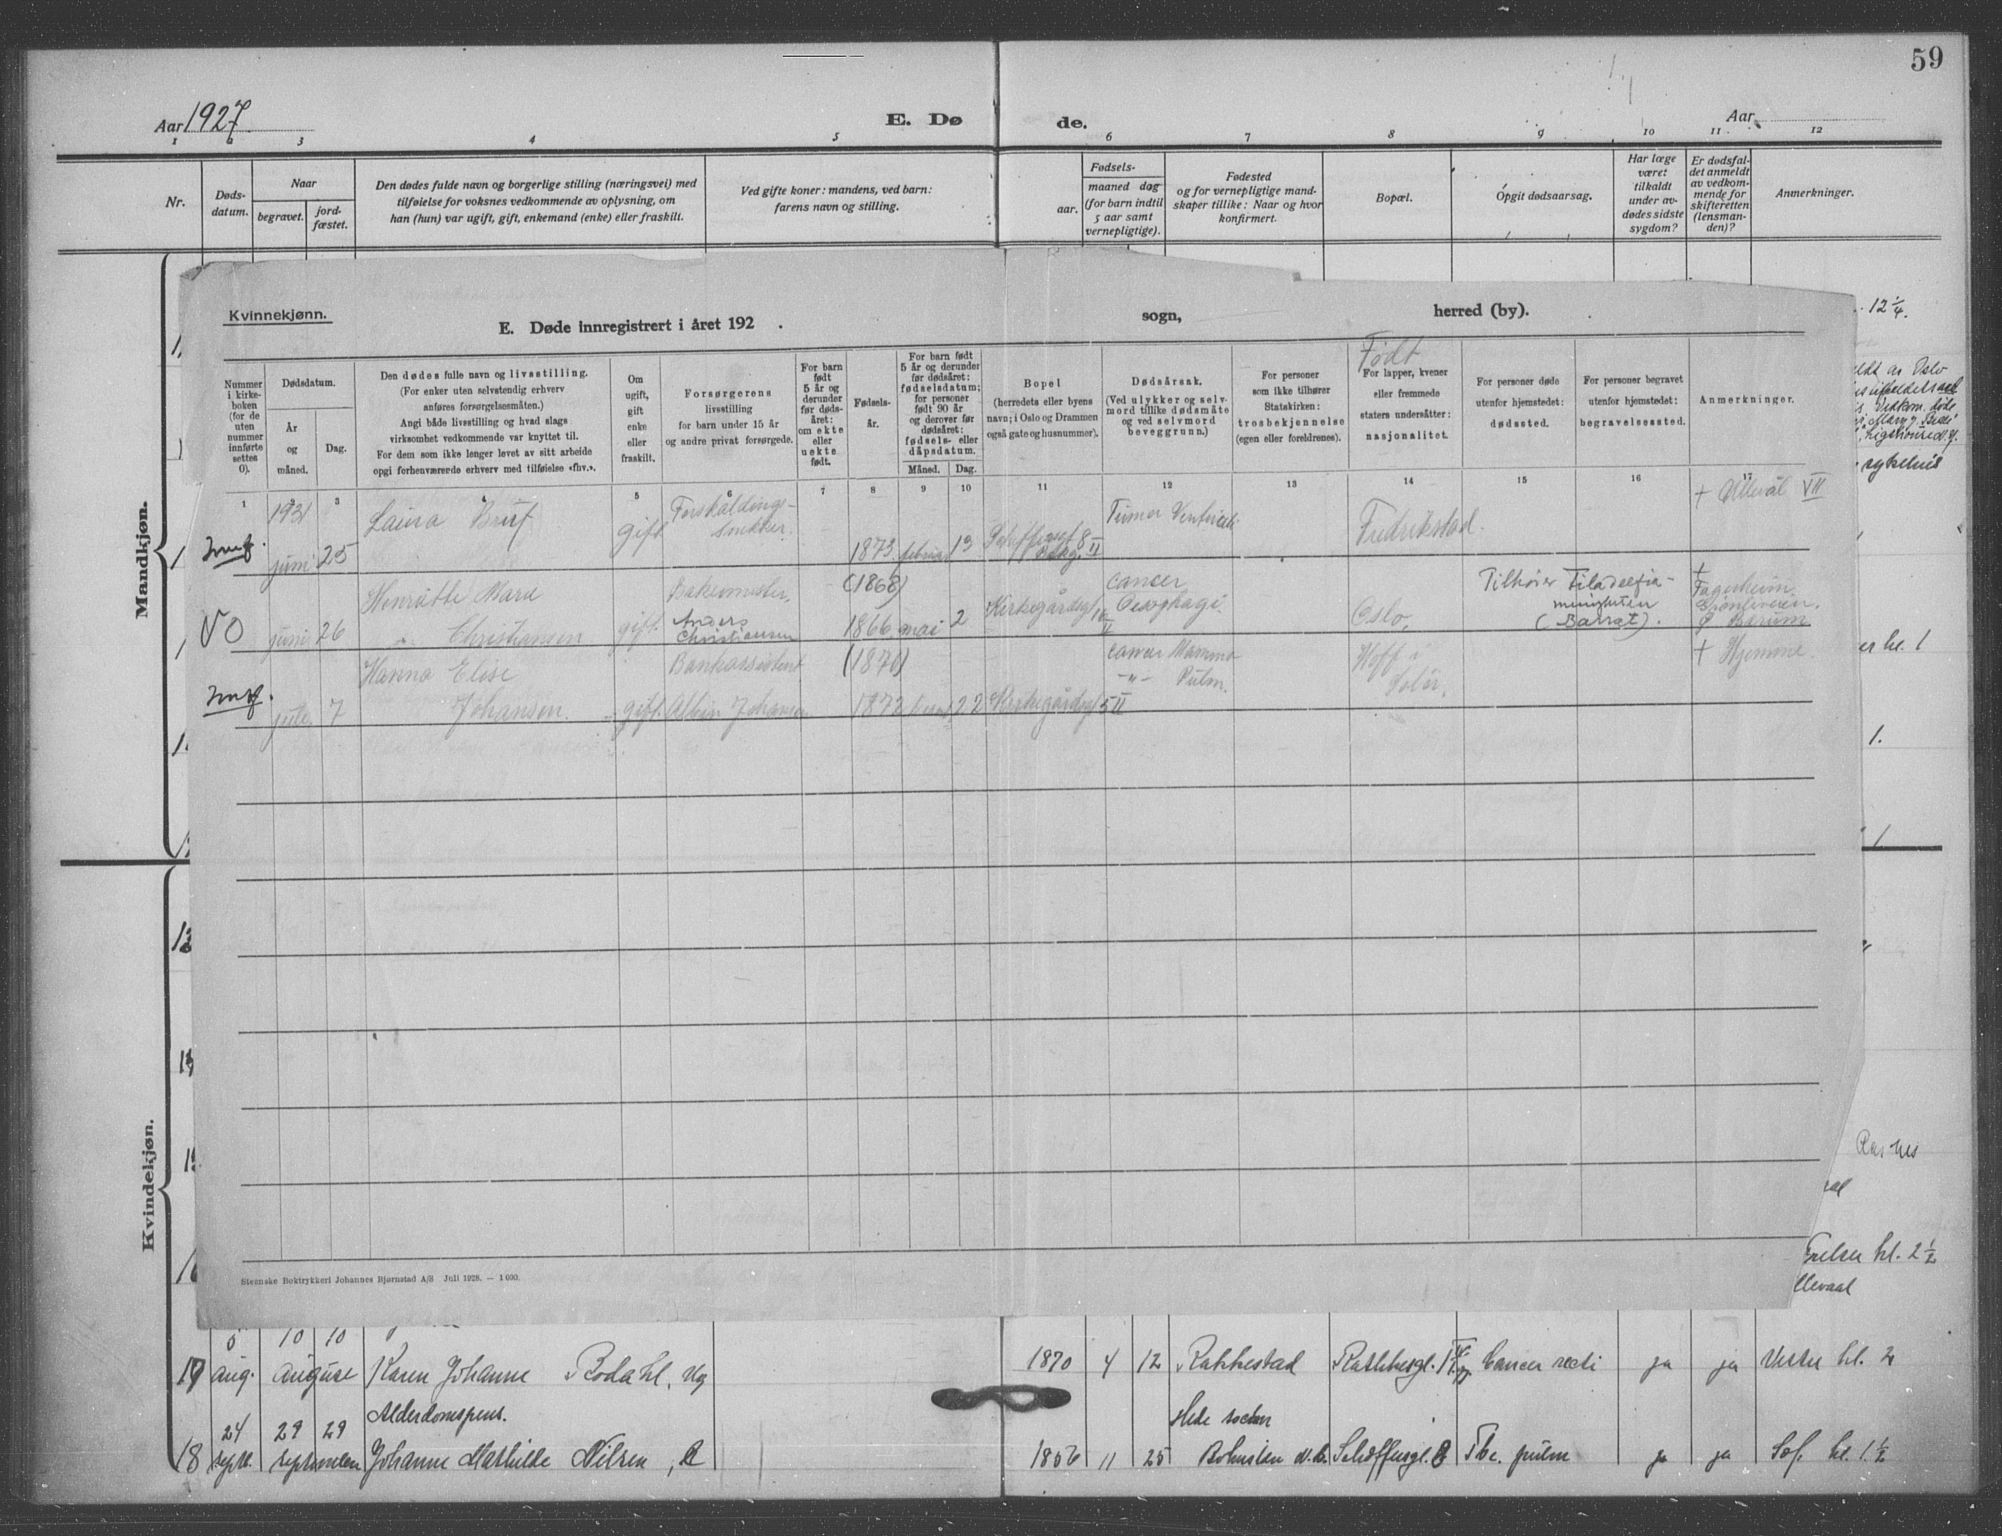 59
Aar 1927.
E. Dø de.
Aar
1 2 3 4 5 6 7 8 9 10 11 12
Nr.
Døds-
datum.
Naar
begravet.
jord-
fæstet.
Den dødes fulde navn og borgerlige stilling (næringsvei) med
tilføielse for voksnes vedkommende av oplysning, om
han (hun) var ugift, gift, enkemand (enke) eller fraskilt.
Ved gifte koner: mandens, ved barn:
farens navn og stilling.
Fødsels-
aar.
maaned dag
(for barn indtil
5 aar samt
vernepligtige).
Fødested
og for vernepligtige mand-
skaper tillike: Naar og hvor
konfirmert.
Bopæl.
Opgit dødsaarsag.
Har læge
været
tilkaldt
under av-
dødes sidste
sygdom?
Er dødsfal-
det anmeldt
av vedkom-
mende for
skifteretten
(lensman-
den)?
Anmerkninger.
Mandkjøn.
Kvindekjøn.
Kvinnekjønn.
E. Døde innregistrert i året 192 .
sogn,
herred (by).
Nummer
i kirke-
boken
(for de
uten
nummer
innførte
settes
0).
Dødsdatum.
År
og
måned.
Dag.
Den dødes fulle navn og livsstilling.
(For enker uten selvstendig erhverv
anføres forsørgelsesmåten.)
Angi både livsstilling og hvad slags
virksomhet vedkommende var knyttet til.
For dem som ikke lenger levet av sitt arbeide
opgi forhenværende erhverv med tilføielse «fhv.».
Om
ugift,
gift
enke
eller
fraskilt.
Forsørgerens
livsstilling
for barn under 15 år
og andre privat forsørgede.
For barn
født
5 år og
derunder
før døds-
året:
om ekte
eller
uekte
født.
Fødsels-
år.
For barn født
5 år og derunder
før dødsåret:
fødselsdatum;
for personer
født 90 år
og derover før
dødsåret:
fødsels- eller
dåpsdatum.
Måned. Dag.
Bopel
(herredets eller byens
navn; i Oslo og Drammen
også gate og husnummer).
Dødsårsak.
(Ved ulykker og selv-
mord tillike dødsmåte
og ved selvmord
beveggrunn.)
For personer
som ikke tilhører
Statskirken:
trosbekjennelse
(egen eller foreldrenes).
Født
For lapper, kvener
eller fremmede
staters undersåtter:
nasjonalitet.
For personer døde
utenfor hjemstedet:
dødssted.
For personer begravet
utenfor hjemstedet:
begravelsessted.
Anmerkninger.
1 2 3 4 5 6 7 8 9 10 11 12 13 14 15 16 17
1931 Laura Forskåldings- Tumor Ventriculi † Ullevål VII
juni 25 gift snekker. 1873 februar 13 8 II Fredrikstad.
Henriette Marie Bakermester, (1868) cancer Tilhører Filadelfia- †
Kirkegårdsgt 16 II Oesophagi. menigheten Fagerheim
V0 juni 26 -"- Christiansen gift. Anders Christiansen 1866 mai 2 Oslo, (Barrat). Bærum
Hanna Elise Bankassistent (1870) cancer Mamma Hoff i † Hjemme.
juli 7 Johansen. gift. Albin Johansen 1872 22 Kirkegårdsgt 5 II -"- Pulm. Solør.
Steenske Boktrykkeri Johannes Bjørnstad A/S Juli 1928. — 1 000.
12 1/4.
sykehus
hl. 1
1.
1
hl. 2 1/2
llevaal
5 10 10
17 aug. august Karen Johanne Rodahl, ug 1870 4 12 Rakkestad Cancer recti ja ja Vestre hl. 2
24 29 29 Alderdomspens. Hede socken
18 sept. september Johanne Mathilde Nilsen, 1856 11 25 Schøffusgt. 8 Tbc. pulm ja ja Sof. hl. 1 1/2